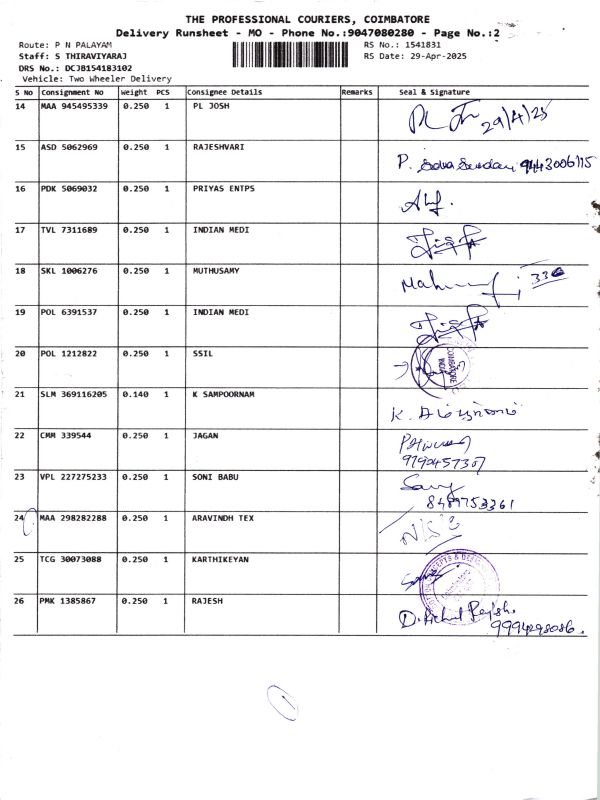 THE PROFESSIONAL COURIERS, COIMBATORE
Delivery Runsheet - MO - Phone No.:9047080280 - Page No.:2
Route: P N PALAYAM RS No.: 1541831
Staff: S THIRAVIYARAJ RS Date: 29-Apr-2025
DRS No.: DCJB154183102
Vehicle: Two Wheeler Delivery
S No Consignment No Weight PCS Consignee Details Remarks Seal & Signature
14 MAA 945495339 0.250 1 PL JOSH
29/4/25
15 ASD 5062969 0.250 1 RAJESHVARI
P. 9443006115
16 PDK 5069032 0.250 1 PRIYAS ENTPS
17 TVL 7311689 0.250 1 INDIAN MEDI
18 SKL 1006276 0.250 1 MUTHUSAMY
336
19 POL 6391537 0.250 1 INDIAN MEDI
20 POL 1212822 0.250 1 SSIL
COIMBATORE
INDIA
21 SLM 369116205 0.140 1 K SAMPOORNAM
22 CMM 339544 0.250 1 JAGAN
23 VPL 227275233 0.250 1 SONI BABU
8489753361
24 MAA 298282288 0.250 1 ARAVINDH TEX
25 TCG 30073088 0.250 1 KARTHIKEYAN
26 PMK 1385867 0.250 1 RAJESH
9994298086.
1